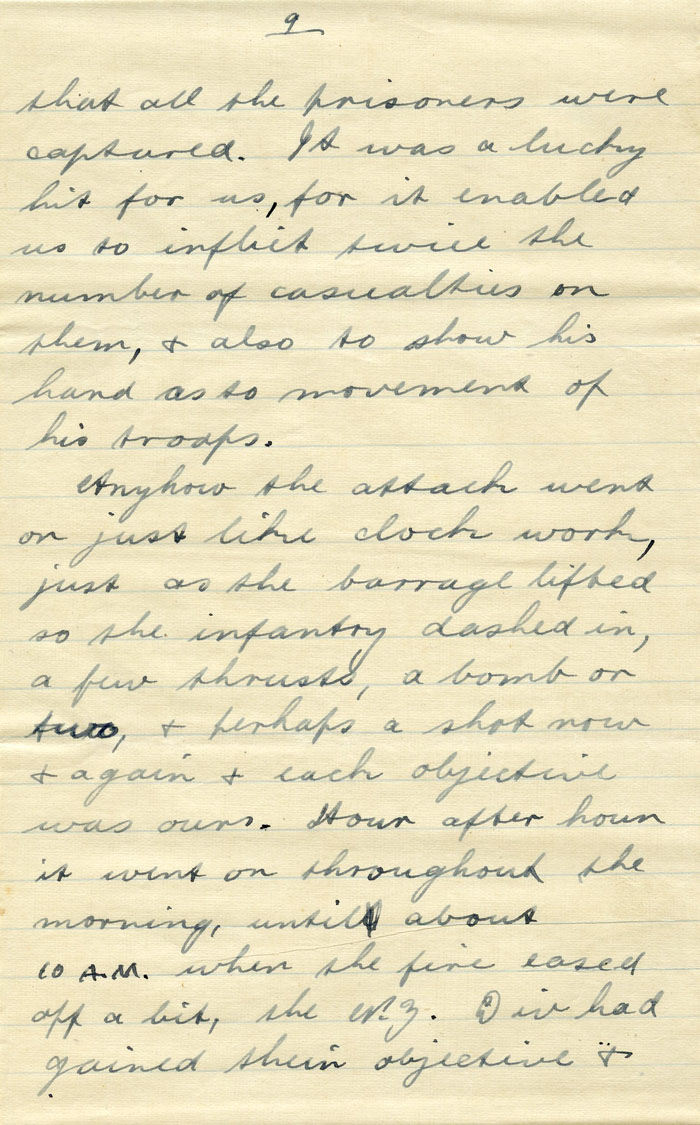 9
that all the prisoners were
captured. It was a lucky
hit for us, for it enabled
us to inflict twice the
number of casualties on
them, & also to show his
hand as to movement of
his troops.
Anyhow the attack went
on just like clock work,
just as the barrage lifted
so the infantry dashed in,
a few thrusts, a bomb or
two, & perhaps a shot now
& again & each objective
was ours. Hour after hour
it went on throughout the
morning, until about
10 A.M. when the fire eased
off a bit, the N.Z. Div had
gained their objective &